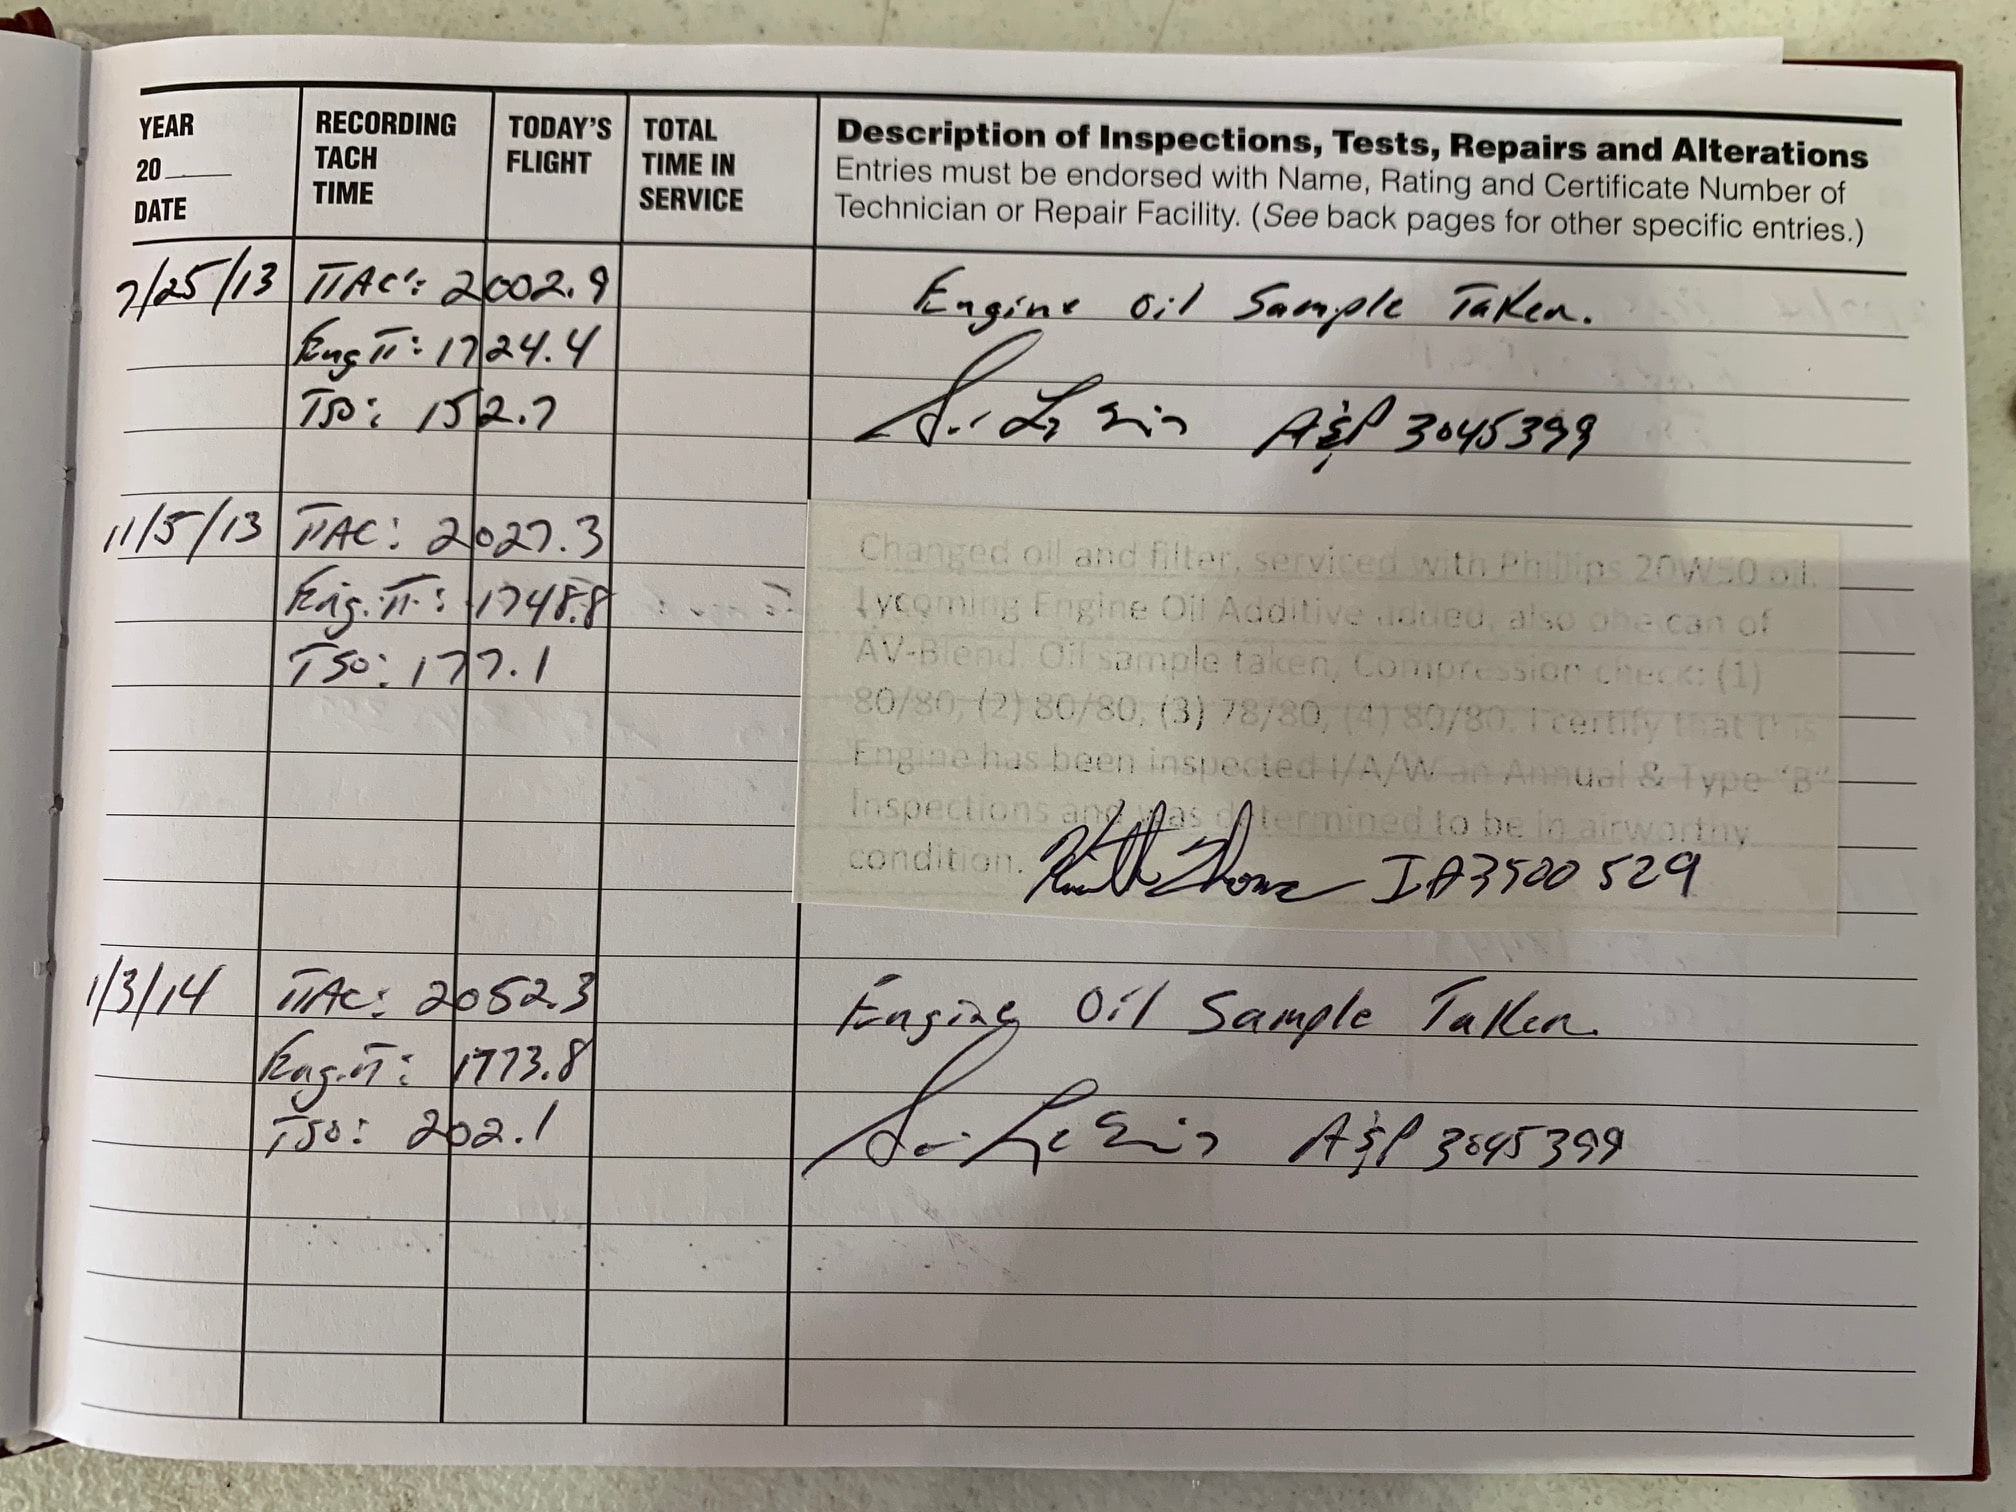 YEAR
20
DATE
RECORDING
TACH
TIME
TODAY'S
FLIGHT
TOTAL
TIME IN
SERVICE
Description of Inspections, Tests, Repairs and Alterations
Entries must be endorsed with Name, Rating and Certificate Number of
Technician or Repair Facility. (See back pages for other specific entries.)
7/25/13 TTAC: 2002.9 Engine Oil Sample Taken.
Eng TT: 1724.4
TSO: 152.7 A&P 3045399
11/5/13 TTAC: 2027.3
Eng. TT: 1748.8
TSO: 177.1
Changed oil and filter, serviced with Phillips 20W50 oil.
Lycoming Engine Oil Additive added, also one can of
AV-Blend. Oil sample taken, Compression check: (1)
80/80, (2) 80/80, (3) 78/80, (4) 80/80. I certify that this
Engine has been inspected I/A/W an Annual & Type "B"
Inspections and was determined to be in airworthy
condition. IA3500529
1/3/14 TTAC: 2052.3 Engine Oil Sample Taken.
Eng. TT: 1773.8
TSO: 202.1 A&P 3045399